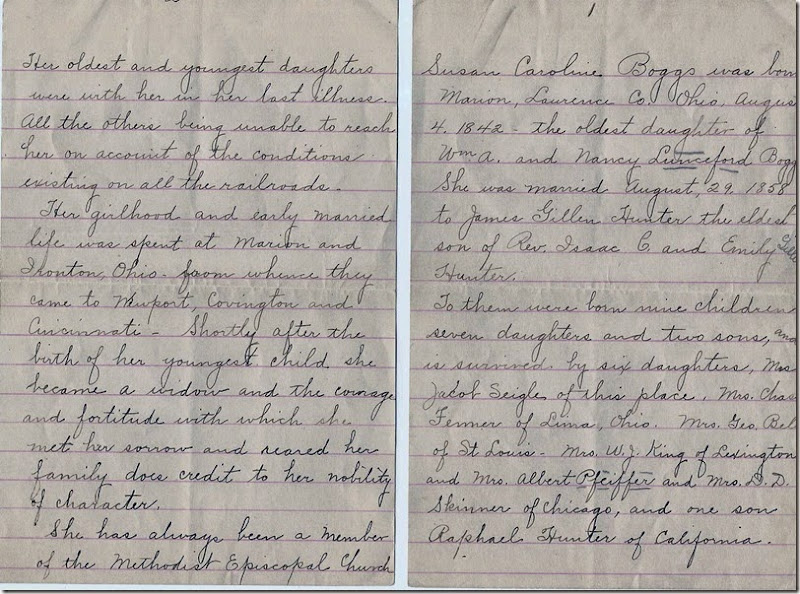 1
Susan Caroline Boggs was born
Marion, Lawrence Co. Ohio, Augus
4. 1842 - the oldest daughter of
Wm A. and Nancy Lunceford Bogg
She was married August, 29. 1858
to James Gillen Hunter the eldest
son of Rev. Isaac C. and Emily Gille
Hunter.
To them were born nine children
seven daughters and two sons, and
is survived by six daughters, Mrs
Jacob Seigle of this place. Mrs. Chas
Fermer of Lima, Ohio. Mrs. Geo. Bel
of St Louis - Mrs. W. J. King of Lexington
and Mrs. Albert Pfeiffer and Mrs. D. D.
Skinner of Chicago, and one son
Raphael Hunter of California.
Her oldest and youngest daughters
were with her in her last illness.
All the others being unable to reach
her on account of the conditions
existing on all the railroads -
Her girlhood and early married
life was spent at Marion and
Ironton, Ohio - from whence they
came to Newport, Covington and
Cincinnati - Shortly after the
birth of her youngest child she
became a widow and the courage
and fortitude with which she
met her sorrow and reared her
family does credit to her nobility
of character.
She has always been a member
of the Methodist Episcopal Church